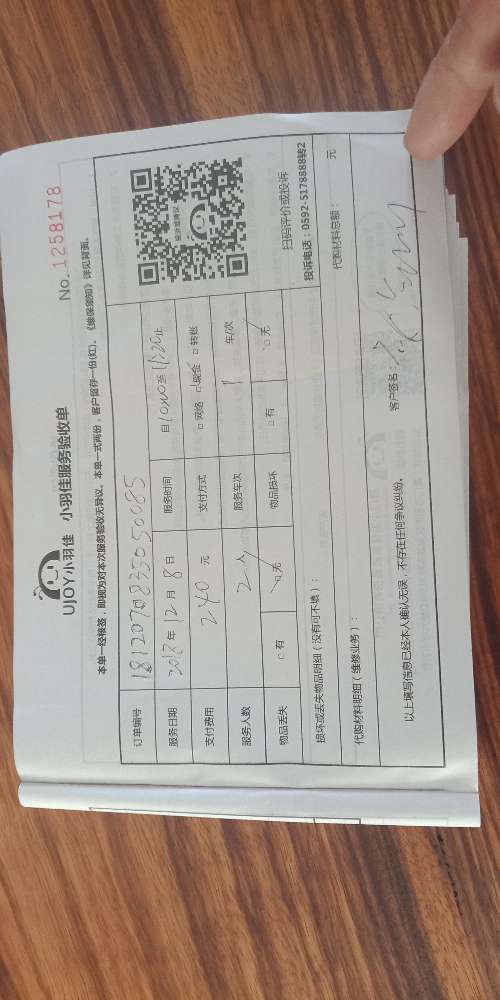 UJOY小羽佳 小羽佳服务验收单
No. 1258178
本单一经核签，即视为对本次服务验收无异议。本单一式两份，客户留存一份(红)。《维保须知》详见背面。
订单编号 18120708335050085
服务日期 2018年12月8日 服务时间 自10:00至11:20止
支付费用 240元 支付方式 □网络 □现金 □转账
服务人数 2人 服务车次 1车/次
物品丢失 □有 □无 物品损坏 □有 □无
扫码评价或投诉
投诉电话：0592-5178888转2
损坏或丢失物品明细（没有可不填）：
代购材料明细（维修业务）： 代购材料总额： 元
以上填写信息已经本人确认无误，不存在任何争议纠纷。 客户签名：